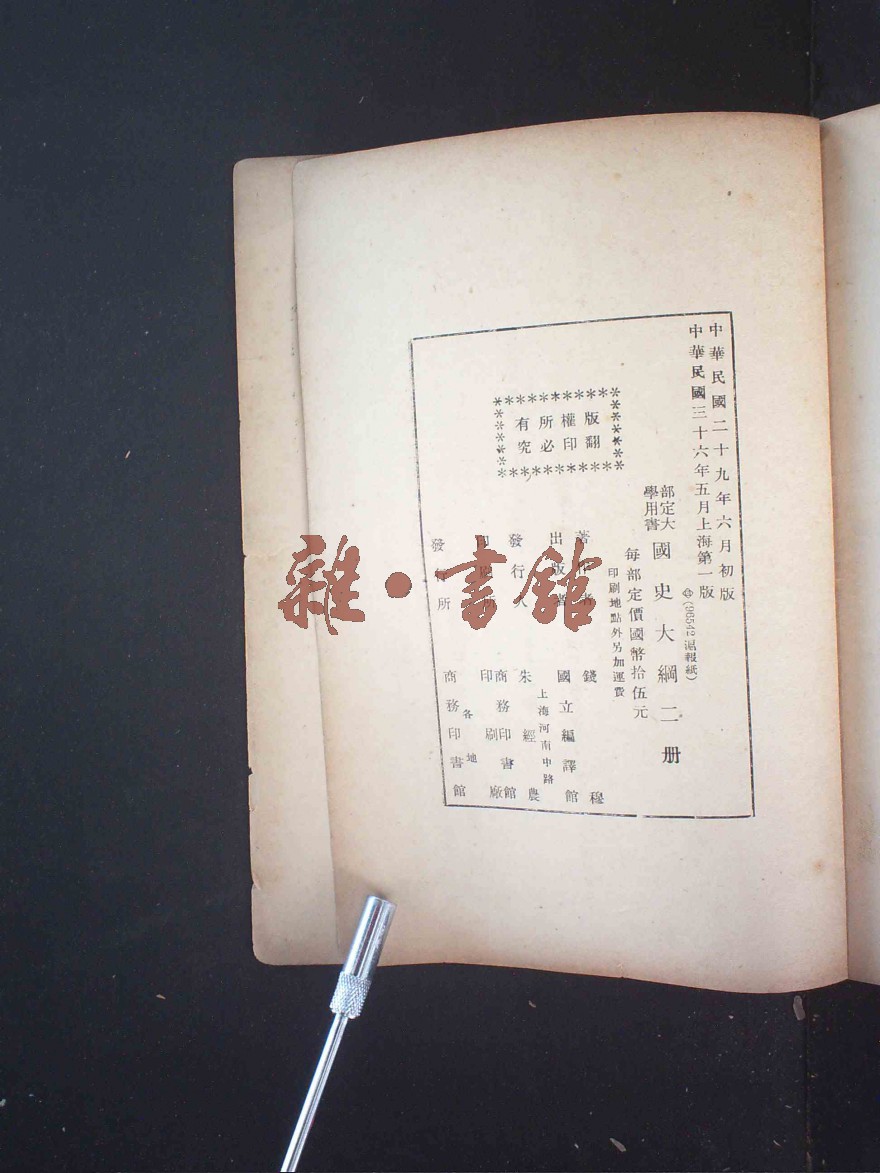 中華民國二十九年六月初版
中華民國三十六年五月上海第一版
㊥(96542滬報紙)
部定大學用書
國史大綱二册
每部定價國幣拾伍元
印刷地點外另加運費
版權所有
翻印必究
著作者 錢穆
出版者 國立編譯館
上海河南中路
發行人 朱經農
印刷所 商務印書館印刷廠
發行所 各地商務印書館
雜·書館